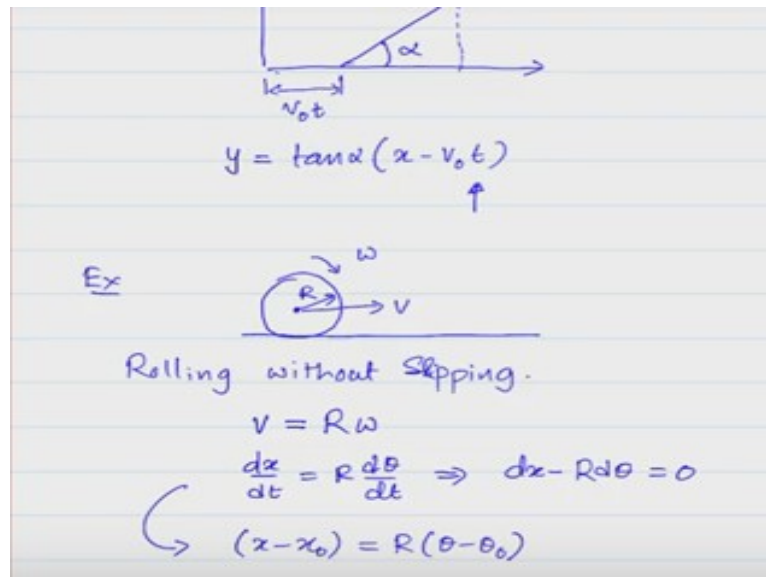 α
v₀t
y = tanα (x - v₀t)
Ex
ω
R
V
Rolling without Slipping.
V = Rω
dx/dt = R dθ/dt ⇒ dx - Rdθ = 0
(x-x₀) = R(θ-θ₀)